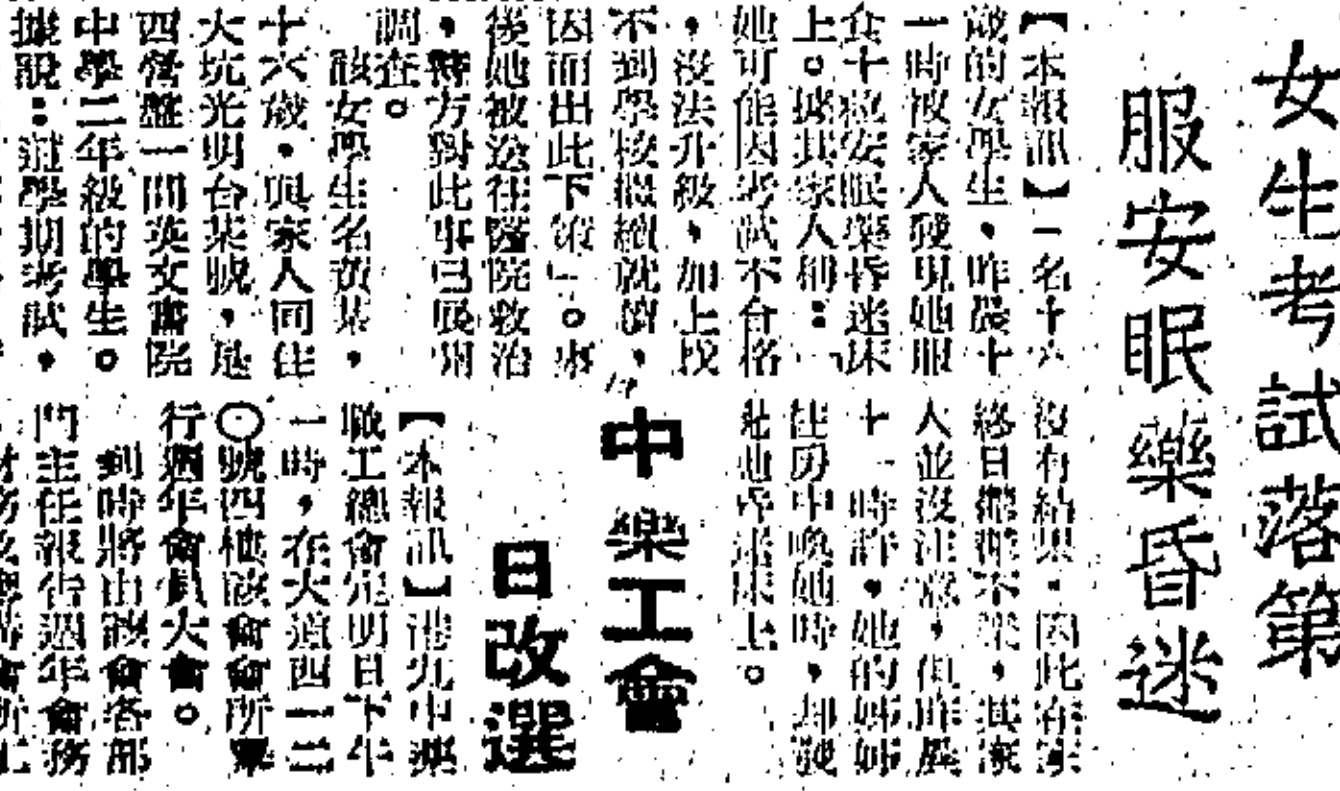 女生考試落第
服安眠藥昏迷
【本報訊】一名十六
歲的女學生,昨晨十
一時被家人發現她服
食十粒安眠藥昏迷床
上。據其家人稱:「
她可能因考試不合格
,沒法升級,加上找
不到學校繼續就讀,
因而出此下策」。事
後她被送往醫院救治
,警方對此事已展開
調查。
該女學生名黃某,
十六歲,與家人同住
大坑光明台某號,是
四營盤一間英文書院
中學二年級的學生。
據說:這學期考試,
沒有結果,因此在家
終日鬱鬱不樂,其家
人並沒注意,但昨晨
十一時許,她的姊姊
往房中喚她時,却發
此她昏迷床上。
中樂工會
日改選
【本報訊】港九中樂
職工總會定明日下午
一時,在大道西一二
〇號四樓該會會所舉
行週年會員大會。
到時將由該會各部
門主任報告過年會務